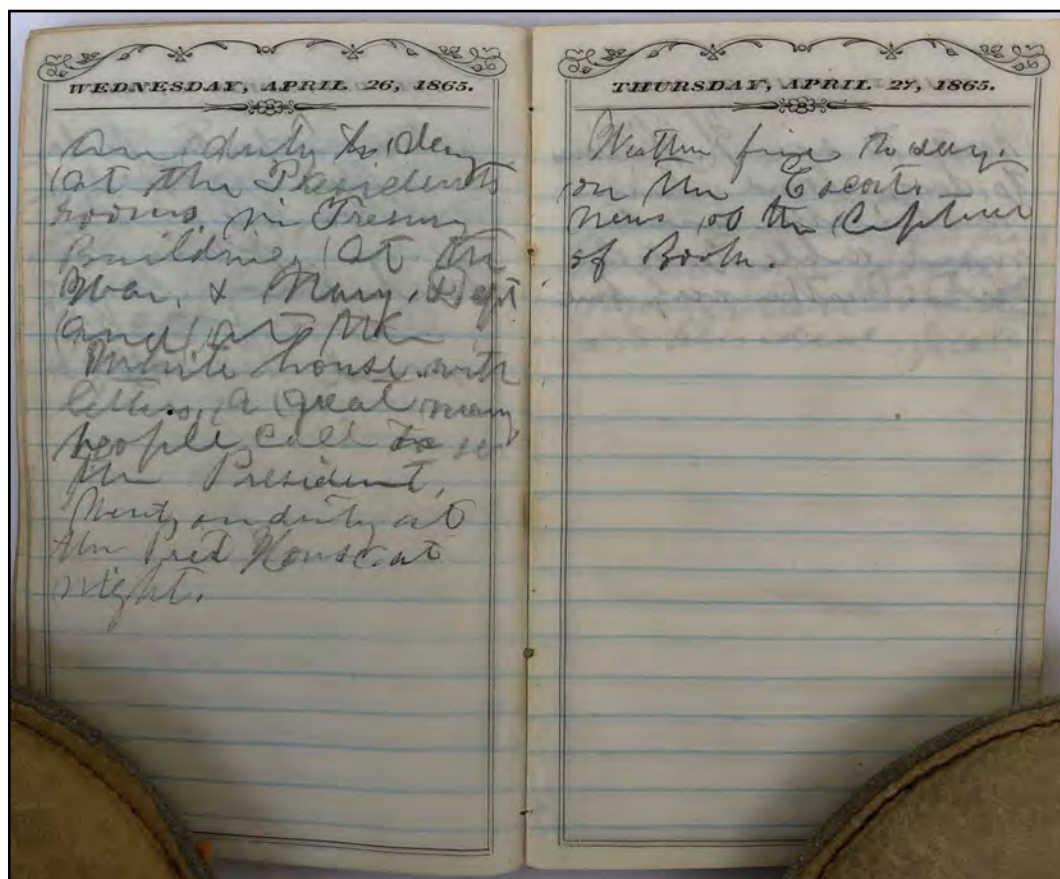 WEDNESDAY, APRIL 26, 1865.
on duty to day
at the Presidents
rooms in Tresury
Building, at the
War, & Navy, Dept
and at the
White house with
letters, a great many
people call to see
the President,
Went on duty at
the Pred House at
night.
THURSDAY, APRIL 27, 1865.
Weather fine to day.
on the Escort.
news of the Capture
of Booth.